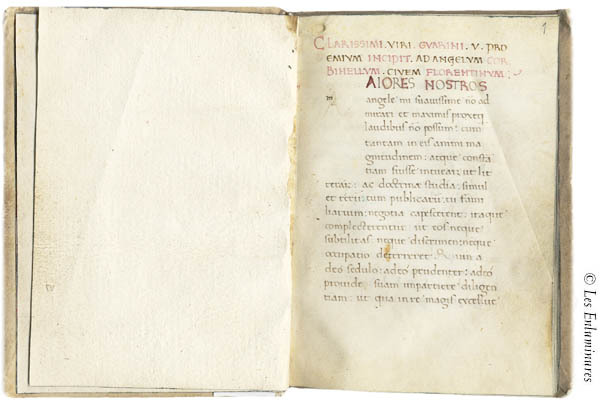 1
CLARISSIMI. VIRI. GVARINI. V. PRO
EMIVM INCIPIT. AD ANGELVM COR
BINELLVM. CIVEM FLORENTINVM:
AIORES NOSTROS
m
angele mi suauissime no ad
mirari et maximis
laudibus nō possum: cum
tantam in eis animi ma
gnitudinem: atque constā
tiam fuisse intuear: ut lit
terar; ac doctrine studia: simul
et rerū: tum publicarū tū fami
liarium: negotia capescerent: itaque
complecterentur ut eos neque
subtilitas neque discrimen: neque
occupatio deterreret. Quin a
deo sedulo: adeo prudenter: adeo
prouide suam impartiere diligen
tiam: ut qua in re magis excelluit
© Les Enluminures